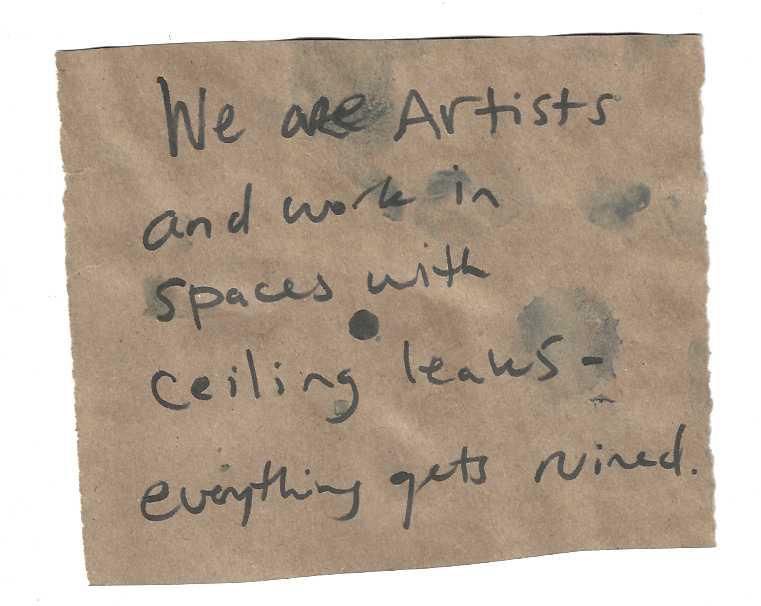 We are Artists
and work in
spaces with
ceiling leaks-
everything gets ruined.